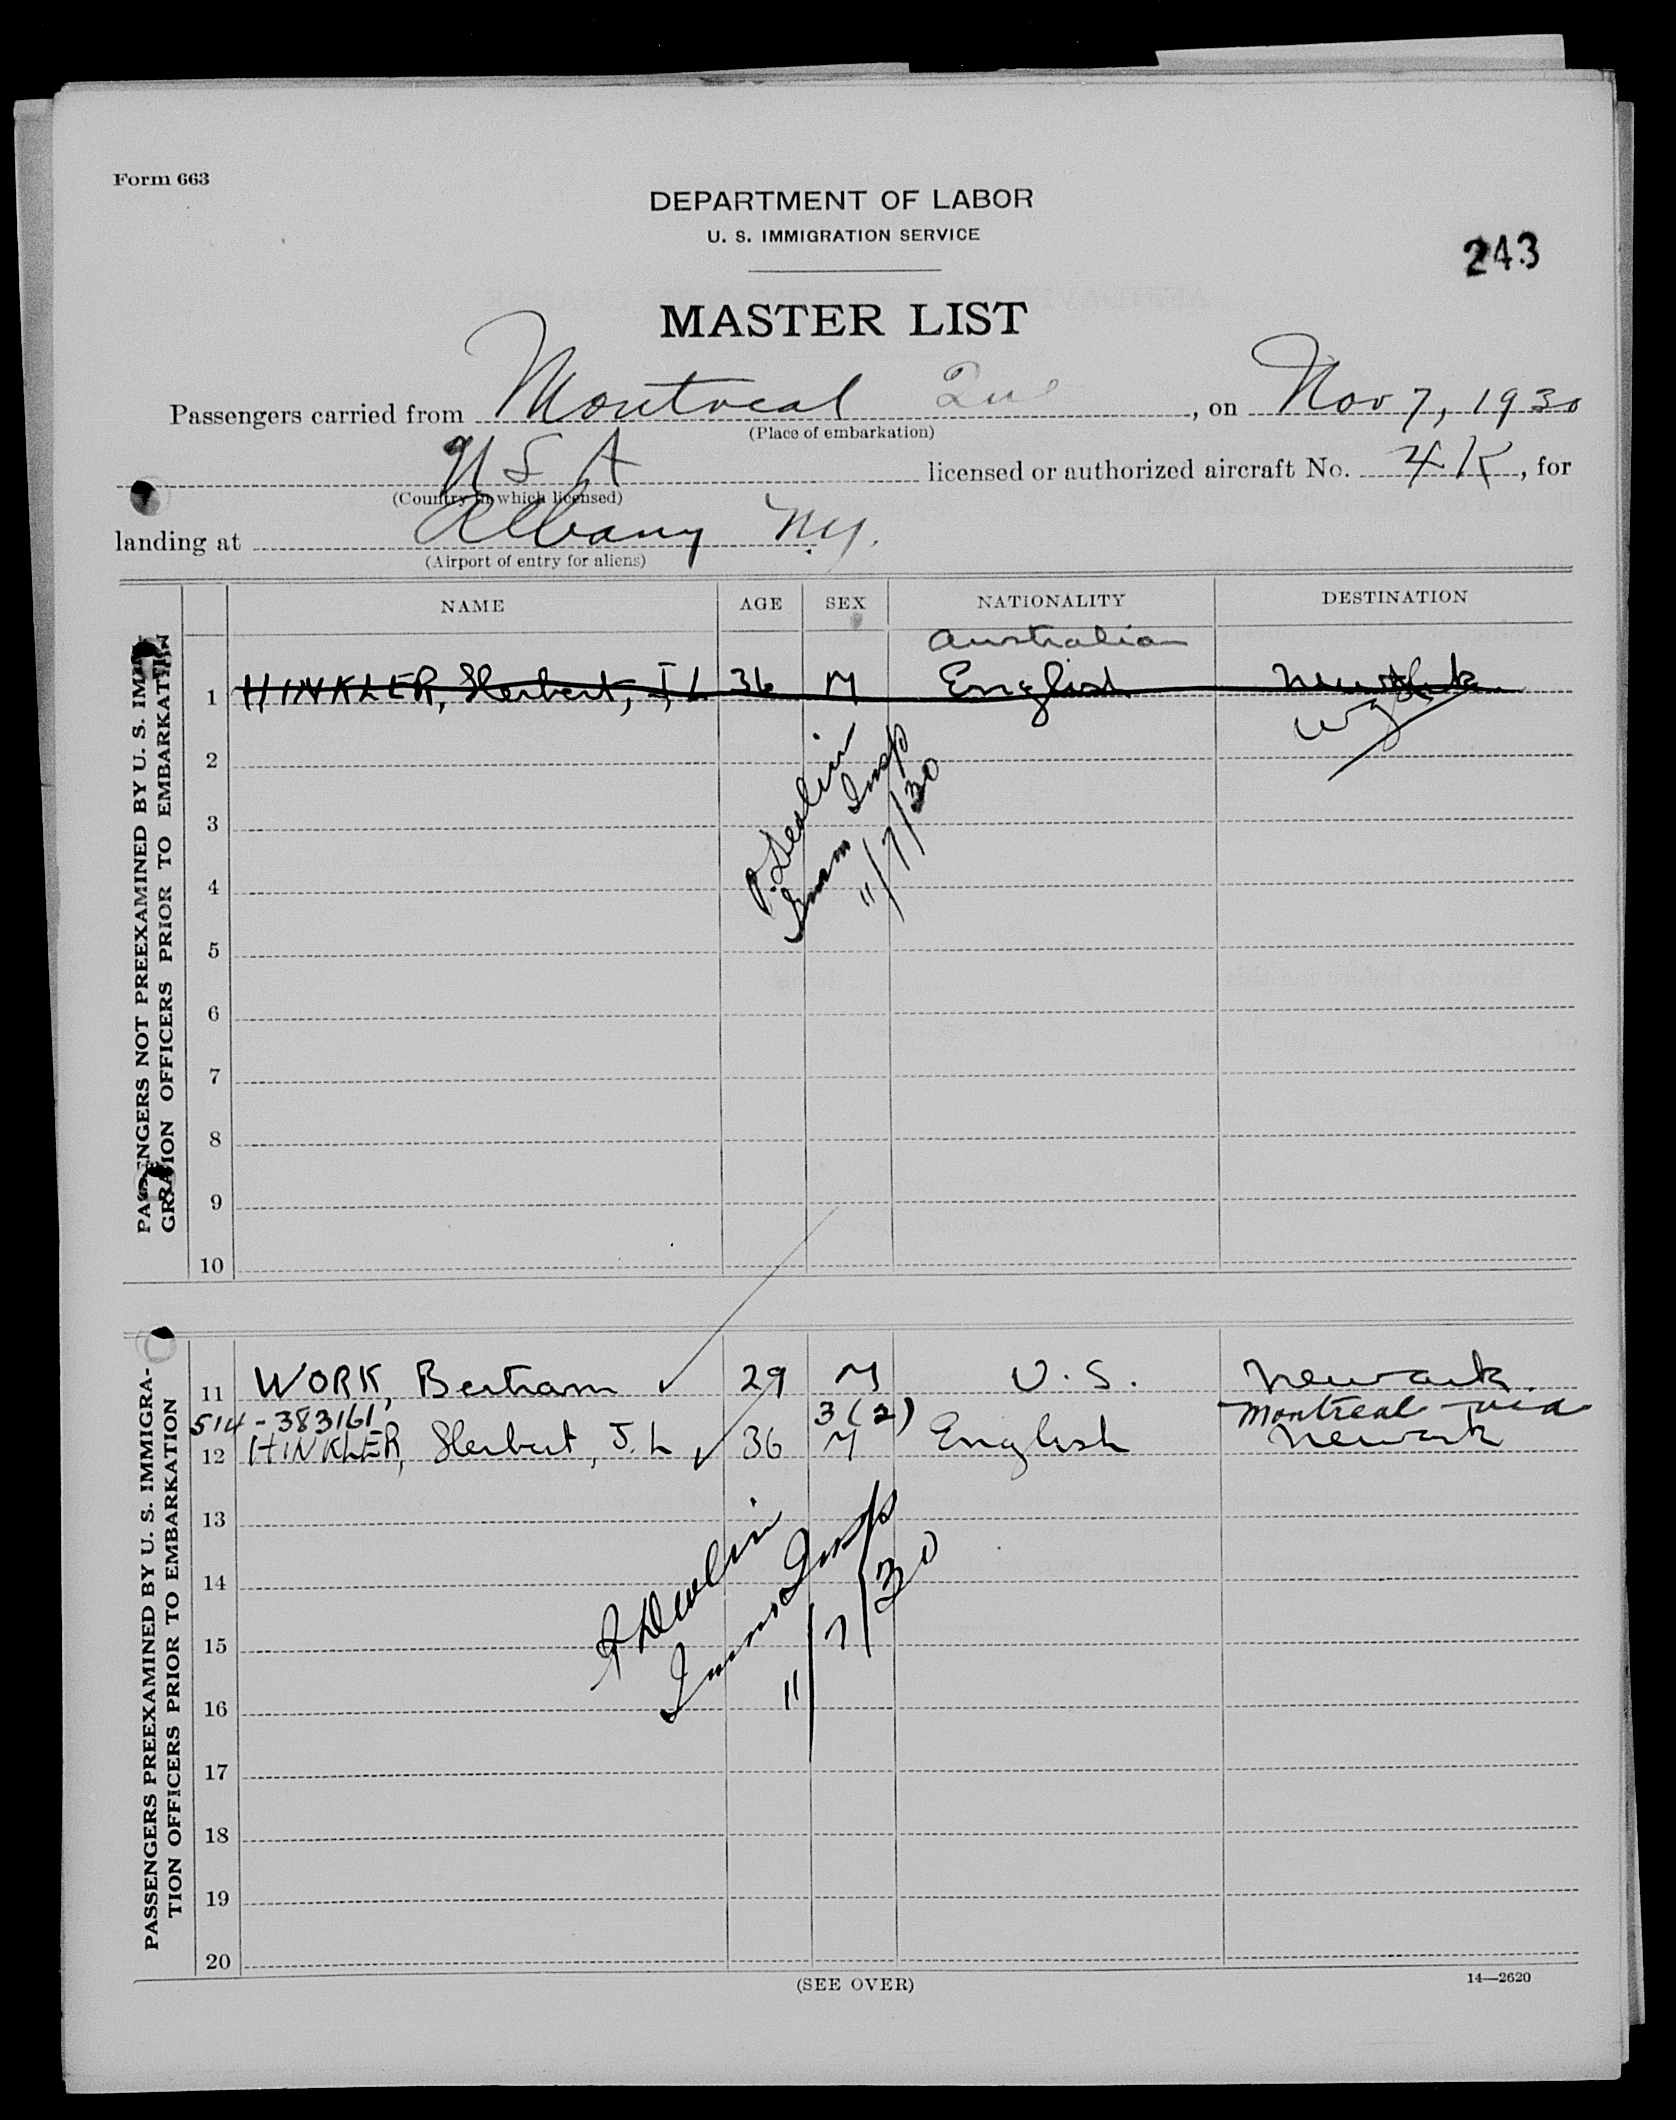 Form 663
DEPARTMENT OF LABOR
U. S. IMMIGRATION SERVICE
243
MASTER LIST
Passengers carried from Montreal Que, on Nov 7, 1930
(Place of embarkation)
USA licensed or authorized aircraft No. 4K, for
(Country in which licensed)
landing at Albany NY.
(Airport of entry for aliens)
NAME AGE SEX NATIONALITY DESTINATION
PASSENGERS NOT PREEXAMINED BY U. S. IMMI-
GRATION OFFICERS PRIOR TO EMBARKATION
Australian
1 HINKLER, Herbert, J, L 36 M English Newark
2
3
4
5
6
7
8
9
10
Devlin
Imm Insp
11/7/30
PASSENGERS PREEXAMINED BY U. S. IMMIGRA-
TION OFFICERS PRIOR TO EMBARKATION
11 WORK, Bertram 29 M U.S. Newark
514-383161 3(2) Montreal via
12 HINKLER, Herbert, J. L 36 M English Newark
13
14
15
16
17
18
19
20
Devlin
Imm Insp
11/7/30
(SEE OVER)
14—2620